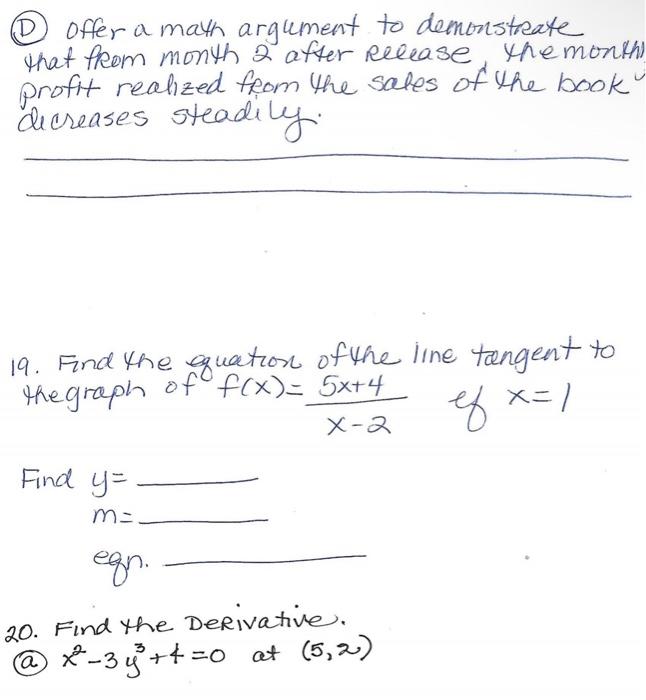 Ⓓ Offer a math argument to demonstrate
that from month 2 after release, the month
profit realized from the sales of the book
decreases steadily.
19. Find the equation of the line tangent to
the graph of f(x) = 5x+4 / x-2 if x=1
Find y=
m=
eqn.
20. Find the Derivative.
ⓐ x²-3y³+4=0 at (5,2)